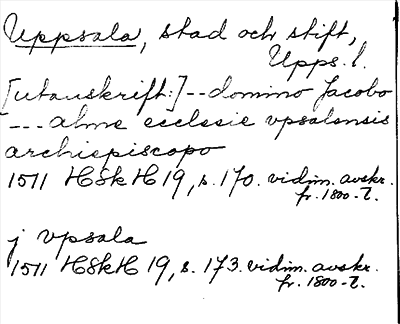 Uppsala, stad och stift,
Upps. l.
[utanskrift:] -- domino Jacobo
--- alme ecclesie vpsalensis
archiepiscopo
1511 HSkH 19, s. 170. vidim. avskr.
fr. 1800-t.
j vpsala
1511 HSkH 19, s. 173. vidim. avskr.
fr. 1800-t.